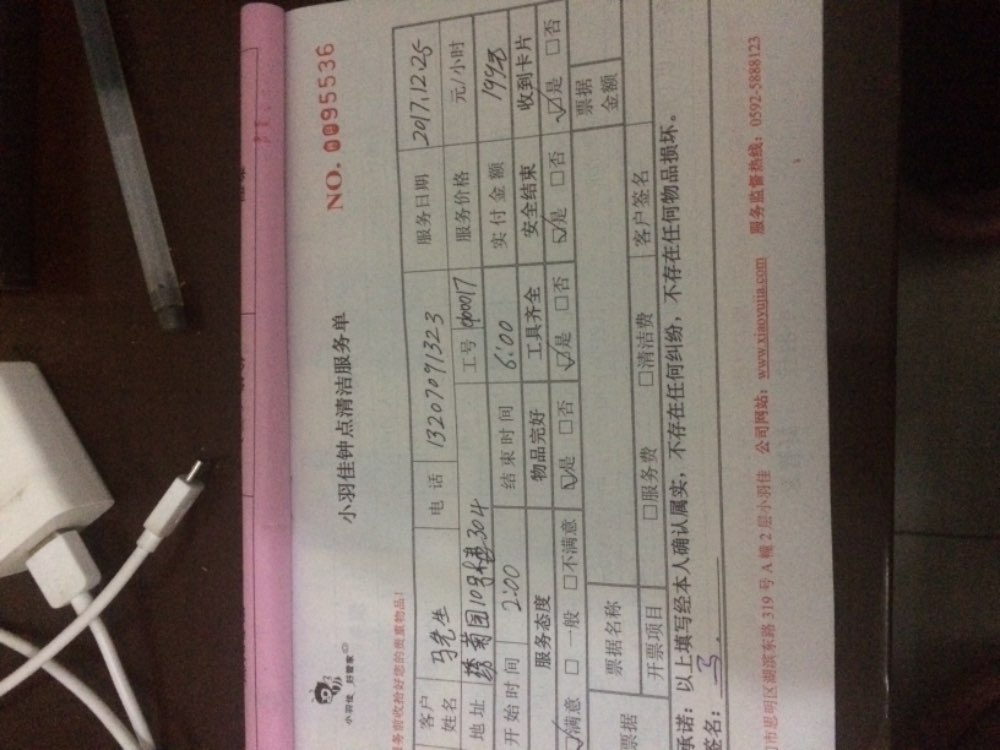 小羽佳 好管家
小羽佳钟点清洁服务单
NO. 0095536
务前收拾好您的贵重物品!
客户姓名 马先生 电话 13207091323 服务日期 2017.12.25
地址 菊团10号楼304 工号 服务价格 元/小时
开始时间 2:00 结束时间 6:00 实付金额
服务态度 物品完好 工具齐全 安全结束 收到卡片
☑满意 □一般 □不满意 ☑是 □否 ☑是 □否 ☑是 □否 ☑是 □否
票据 票据名称 票据金额
开票项目 □服务费 □清洁费 客户签名
承诺:以上填写经本人确认属实,不存在任何纠纷,不存在任何物品损坏。
签名: 马
市思明区湖滨东路 319 号 A 幢 2 层小羽佳 公司网站:www.xiaoyujia.com 服务监督热线:0592-5888123